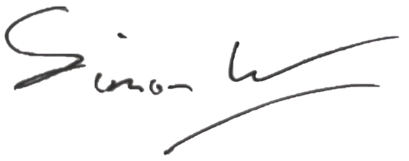 Simon W